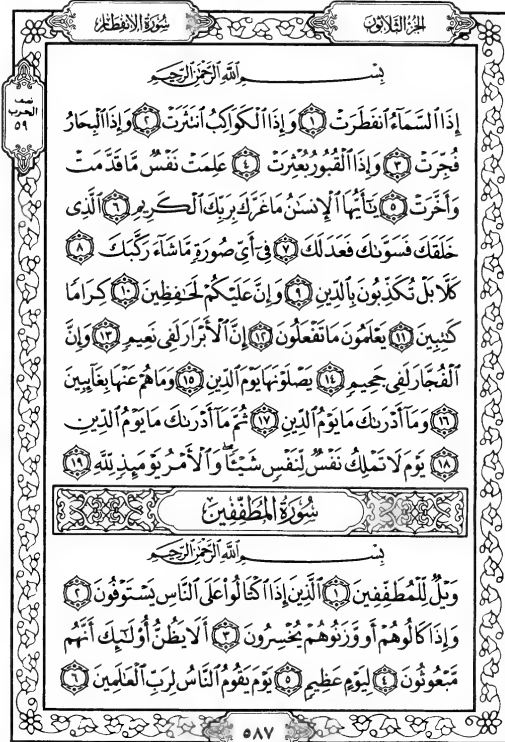 سُورَةُ الانفِطَارِ
الجُزْءُ الثَّلاثُونَ
نصف
الحزب
٥٩
بِسْمِ اللَّهِ الرَّحْمَٰنِ الرَّحِيمِ
إِذَا السَّمَآءُ انفَطَرَتْ ١ وَإِذَا الْكَوَاكِبُ انتَثَرَتْ ٢ وَإِذَا الْبِحَارُ
فُجِّرَتْ ٣ وَإِذَا الْقُبُورُ بُعْثِرَتْ ٤ عَلِمَتْ نَفْسٌ مَّا قَدَّمَتْ
وَأَخَّرَتْ ٥ يَٰٓأَيُّهَا الْإِنسَٰنُ مَا غَرَّكَ بِرَبِّكَ الْكَرِيمِ ٦ الَّذِى
خَلَقَكَ فَسَوَّىٰكَ فَعَدَلَكَ ٧ فِىٓ أَىِّ صُورَةٍ مَّا شَآءَ رَكَّبَكَ ٨
كَلَّا بَلْ تُكَذِّبُونَ بِالدِّينِ ٩ وَإِنَّ عَلَيْكُمْ لَحَٰفِظِينَ ١٠ كِرَامًا
كَٰتِبِينَ ١١ يَعْلَمُونَ مَا تَفْعَلُونَ ١٢ إِنَّ الْأَبْرَارَ لَفِى نَعِيمٍ ١٣ وَإِنَّ
الْفُجَّارَ لَفِى جَحِيمٍ ١٤ يَصْلَوْنَهَا يَوْمَ الدِّينِ ١٥ وَمَا هُمْ عَنْهَا بِغَآئِبِينَ
١٦ وَمَآ أَدْرَىٰكَ مَا يَوْمُ الدِّينِ ١٧ ثُمَّ مَآ أَدْرَىٰكَ مَا يَوْمُ الدِّينِ
١٨ يَوْمَ لَا تَمْلِكُ نَفْسٌ لِّنَفْسٍ شَيْـًٔا ۖ وَالْأَمْرُ يَوْمَئِذٍ لِّلَّهِ ١٩
سُورَةُ المُطَفِّفِينَ
بِسْمِ اللَّهِ الرَّحْمَٰنِ الرَّحِيمِ
وَيْلٌ لِّلْمُطَفِّفِينَ ١ الَّذِينَ إِذَا اكْتَالُوا۟ عَلَى النَّاسِ يَسْتَوْفُونَ ٢
وَإِذَا كَالُوهُمْ أَو وَّزَنُوهُمْ يُخْسِرُونَ ٣ أَلَا يَظُنُّ أُو۟لَٰٓئِكَ أَنَّهُم
مَّبْعُوثُونَ ٤ لِيَوْمٍ عَظِيمٍ ٥ يَوْمَ يَقُومُ النَّاسُ لِرَبِّ الْعَٰلَمِينَ ٦
٥٨٧